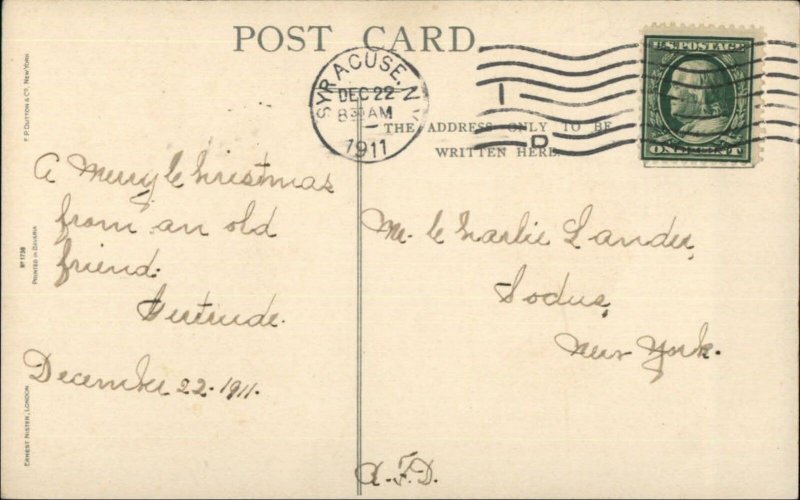 POST CARD
SYRACUSE, N.Y.
DEC 22
8 30 AM
1911
I
D
U.S. POSTAGE
ONE CENT
THE ADDRESS ONLY TO BE
WRITTEN HERE.
A Merry Christmas
from an old
friend.
Gertrude.
December 22. 1911.
Mr. Charlie Lander,
Sodus,
New York.
R.F.D.
E.P. DUTTON & CO. NEW YORK
No 1738
PRINTED IN BAVARIA
ERNEST NISTER, LONDON